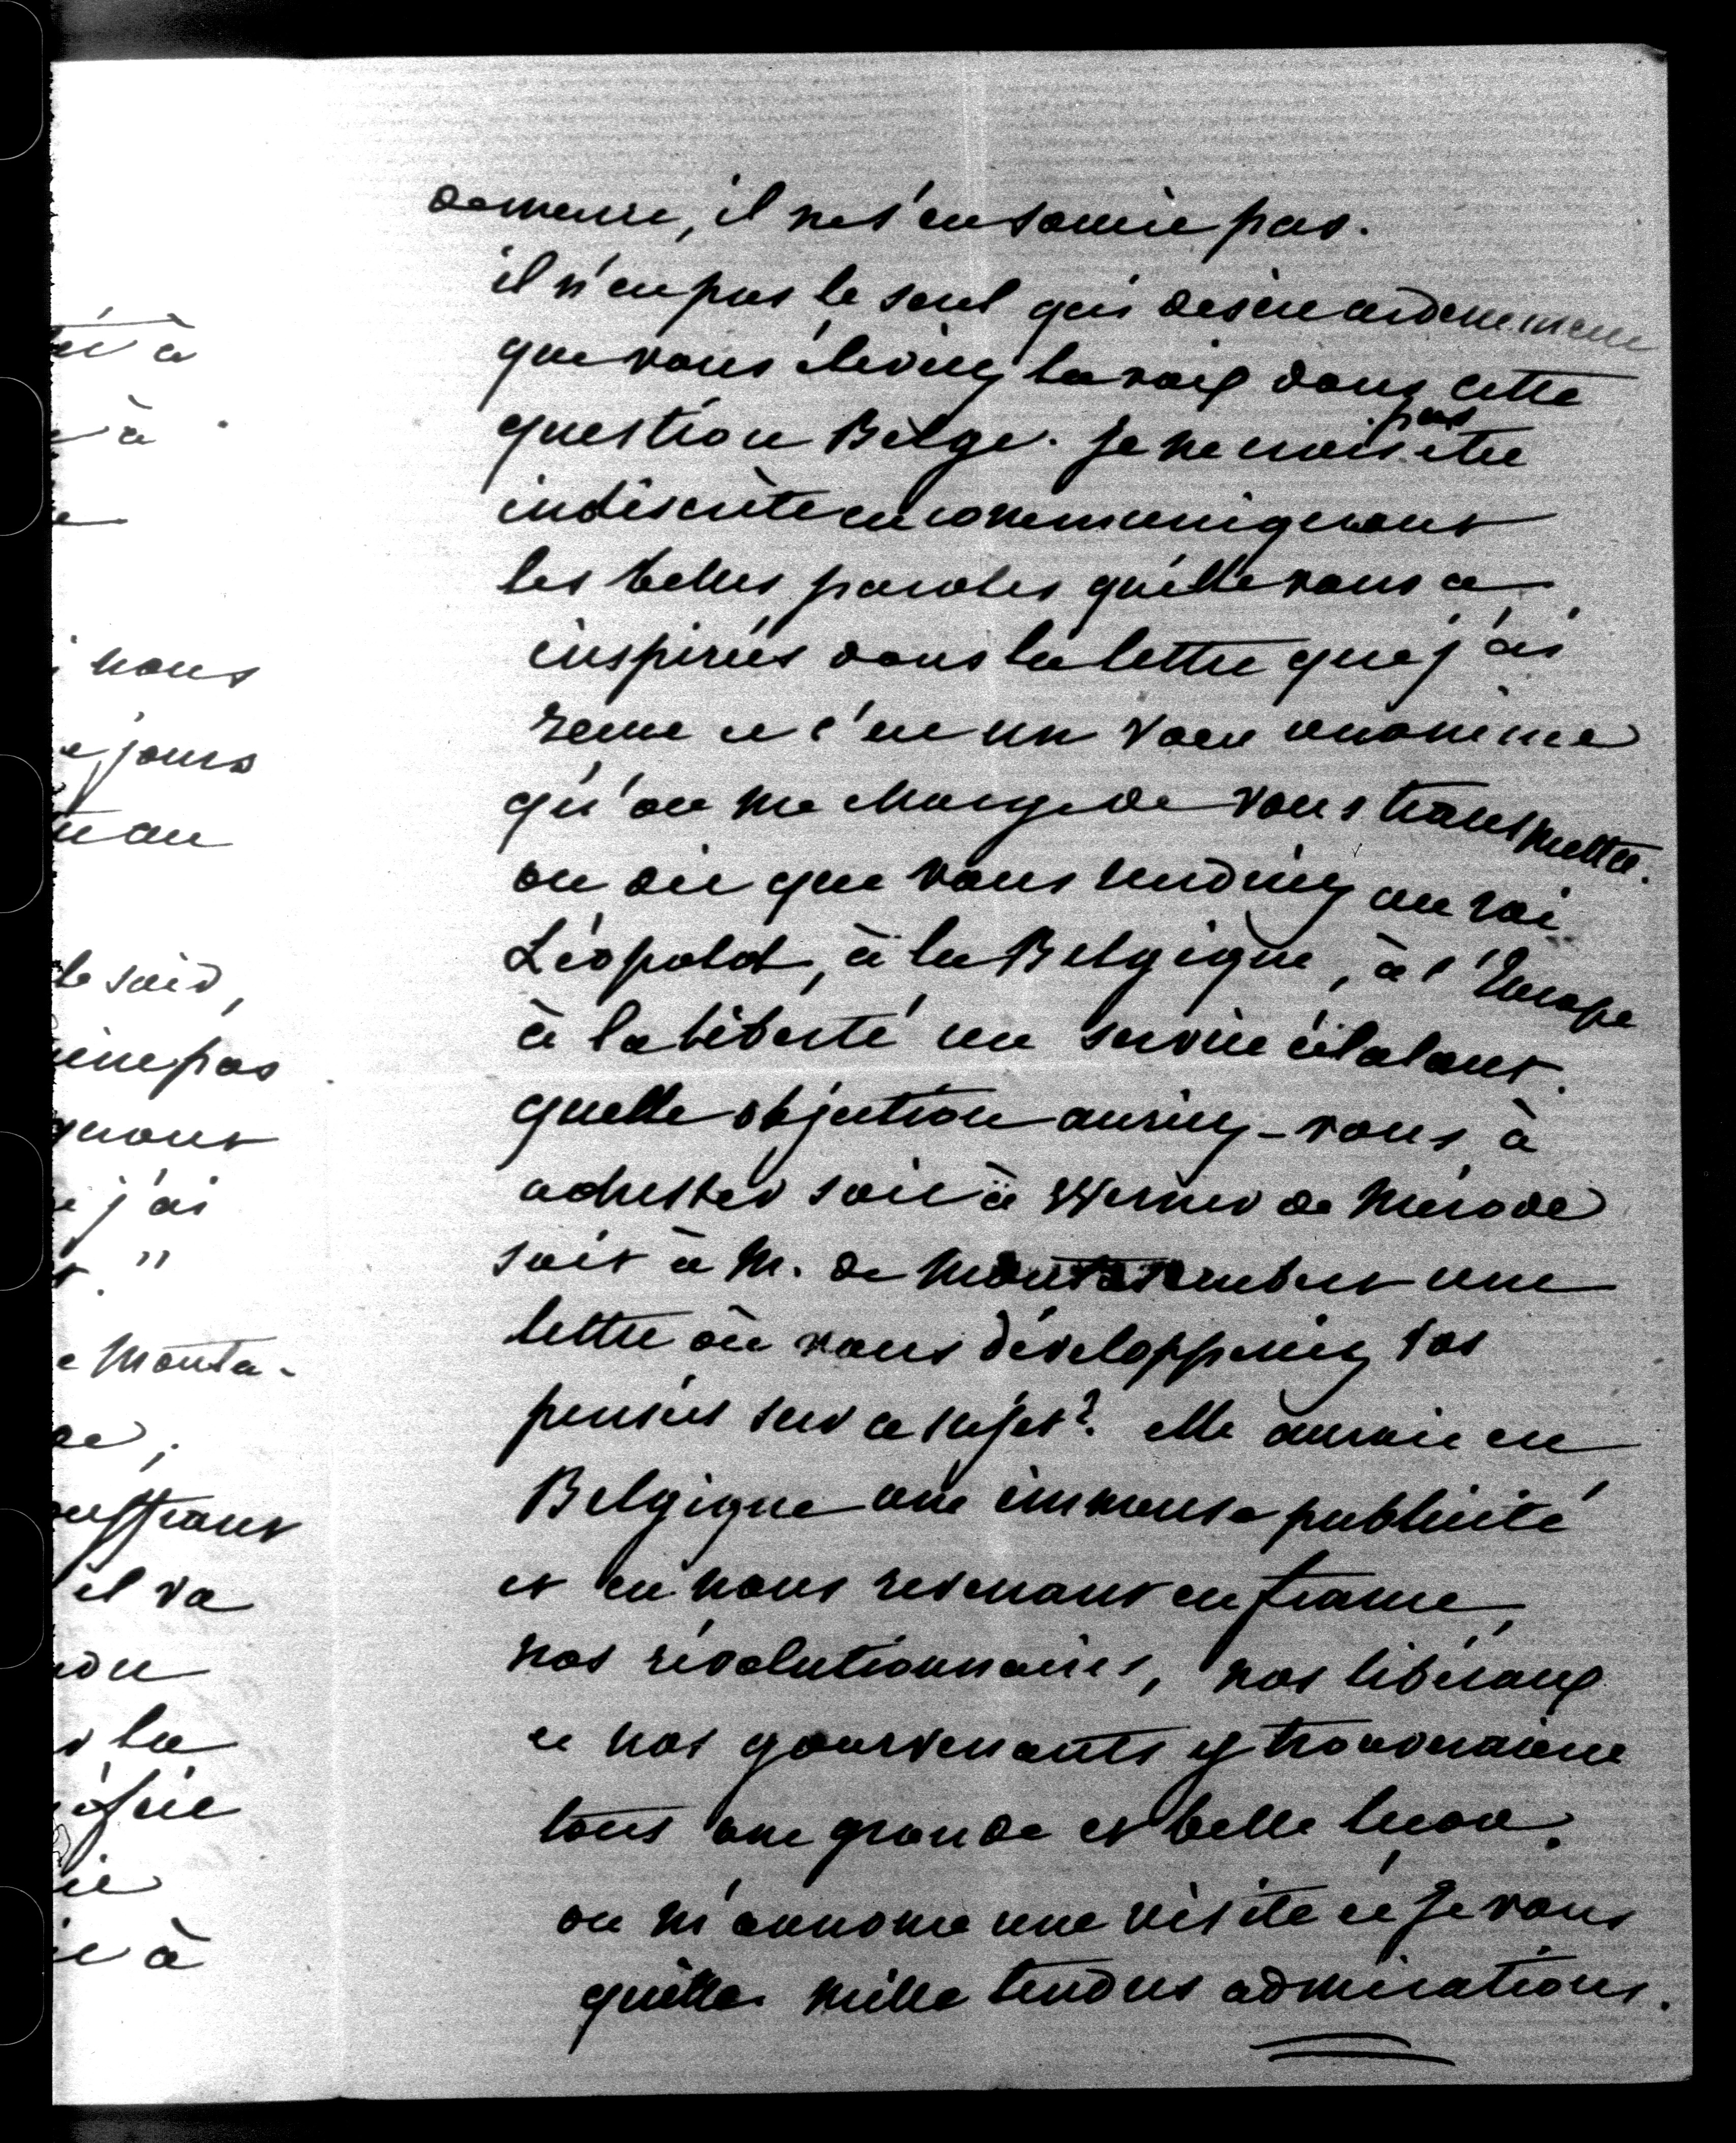 té à
à
nous
jours
le soir,
pas
quant
j'ai
t."
e Monta-
de,
il va
la
à
demeure, il ne s'en soucie pas.
il n'est pas le seul qui desire ardemment
que vous éleviez la voix dans cette
question Belge. Je ne crois pas être
indiscrète en communiquant
les belles paroles qu'elle vous a
inspirées dans la lettre que j'ai
reçue et c'est un vœu unanime
qu'on me charge de vous transmettre.
on dit que vous rendriez au roi
Léopold, à la Belgique, à l'Europe
à la liberté un service éclatant.
quelle objection auriez-vous à
adresser soit à Werner de Mérode
soit à M. de Montalembert une
lettre où vous développeriez vos
pensées sur ce sujet? elle aurait en
Belgique une immense publicité
et en nous revenant en france,
nos révolutionnaires, nos libéraux
et nos gouvernants y trouveraient
tous une grande et belle leçon.
on m'annonce une visite et je vous
quitte. mille tendres admirations.